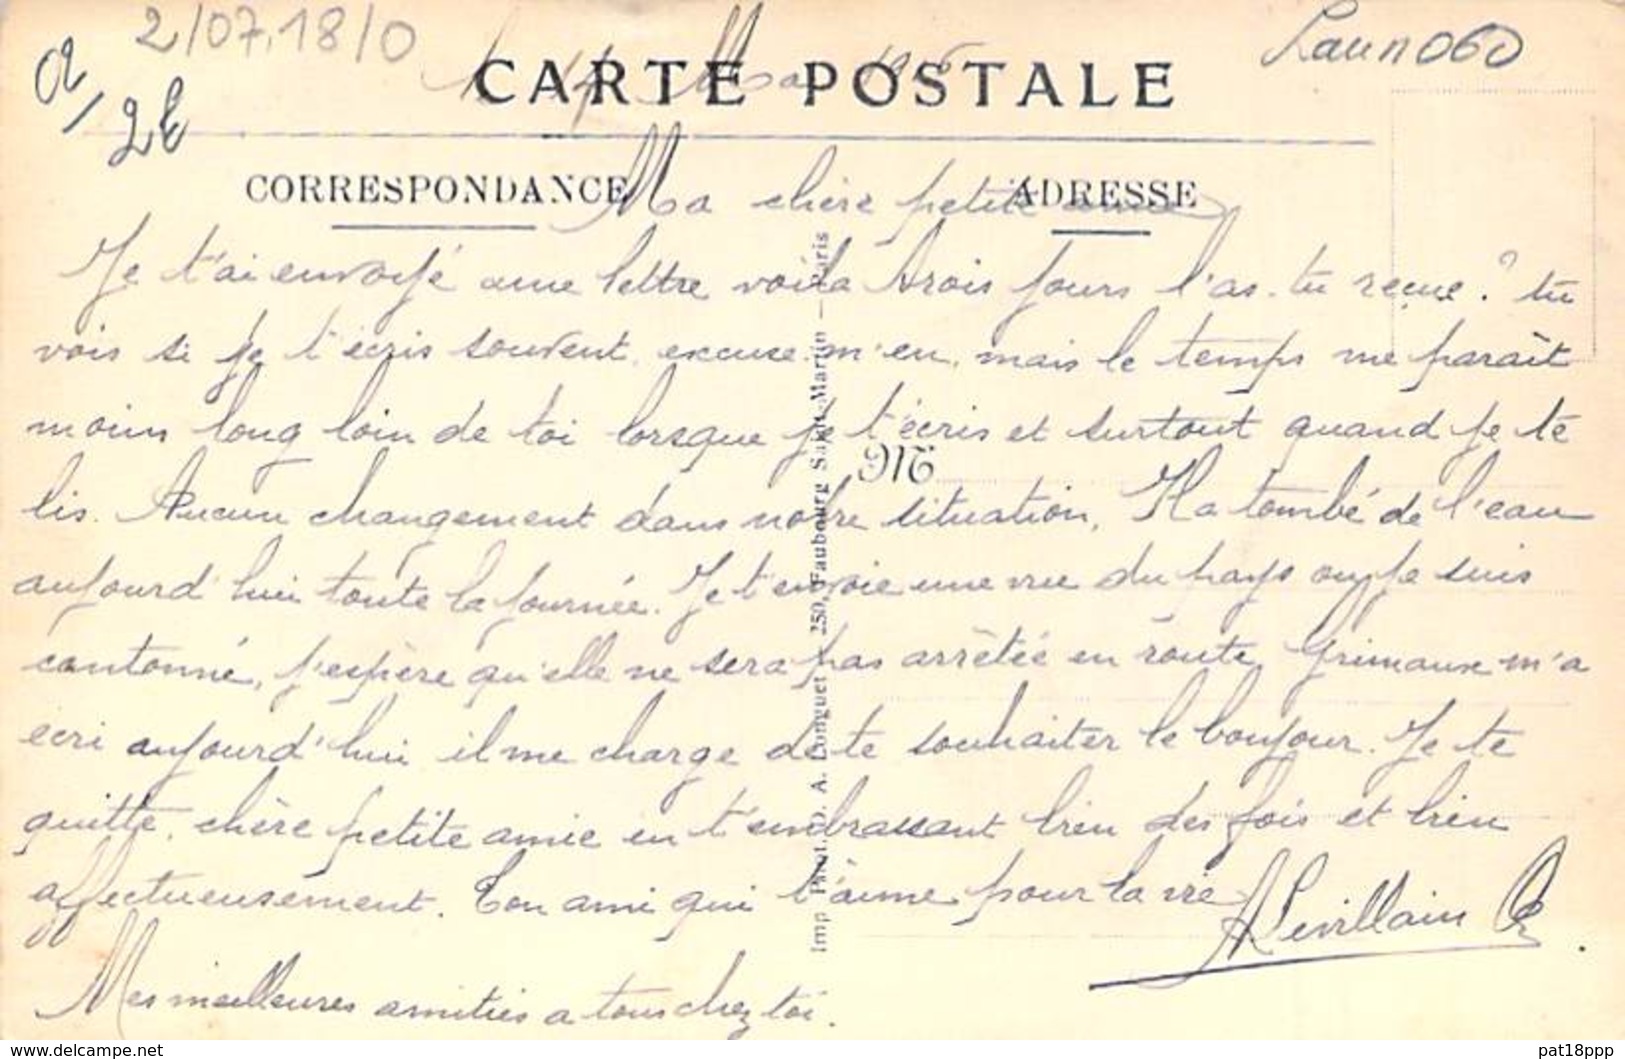 2/07.18/0
Laun060
2t
CARTE POSTALE
CORRESPONDANCE
ADRESSE
Ma chère petite amie
Je t'ai envoyé une lettre voila trois jours l'as-tu reçue? tu
vois si je t'écris souvent, excuse-m'en, mais le temps me parait
moins long loin de toi lorsque je t'écris et surtout quand je te
lis. Aucun changement dans notre situation. Il a tombé de l'eau
M
aujourd'hui toute la journée. Je t'envoie une vue du pays ou je suis
cantonné, j'espère qu'elle ne sera pas arrêtée en route. Grimaux m'a
écri aujourd'hui il me charge de te souhaiter le bonjour. Je te
quitte, chère petite amie en t'embrassant bien des fois et bien
affectueusement. Ton ami qui t'aime pour la vie
ALevillain
Mes meilleures amitiés a tous chez toi.
Imp. Phot. D. A. Longuet 250, Faubourg Saint-Martin — Paris
pat18ppp
www.delcampe.net